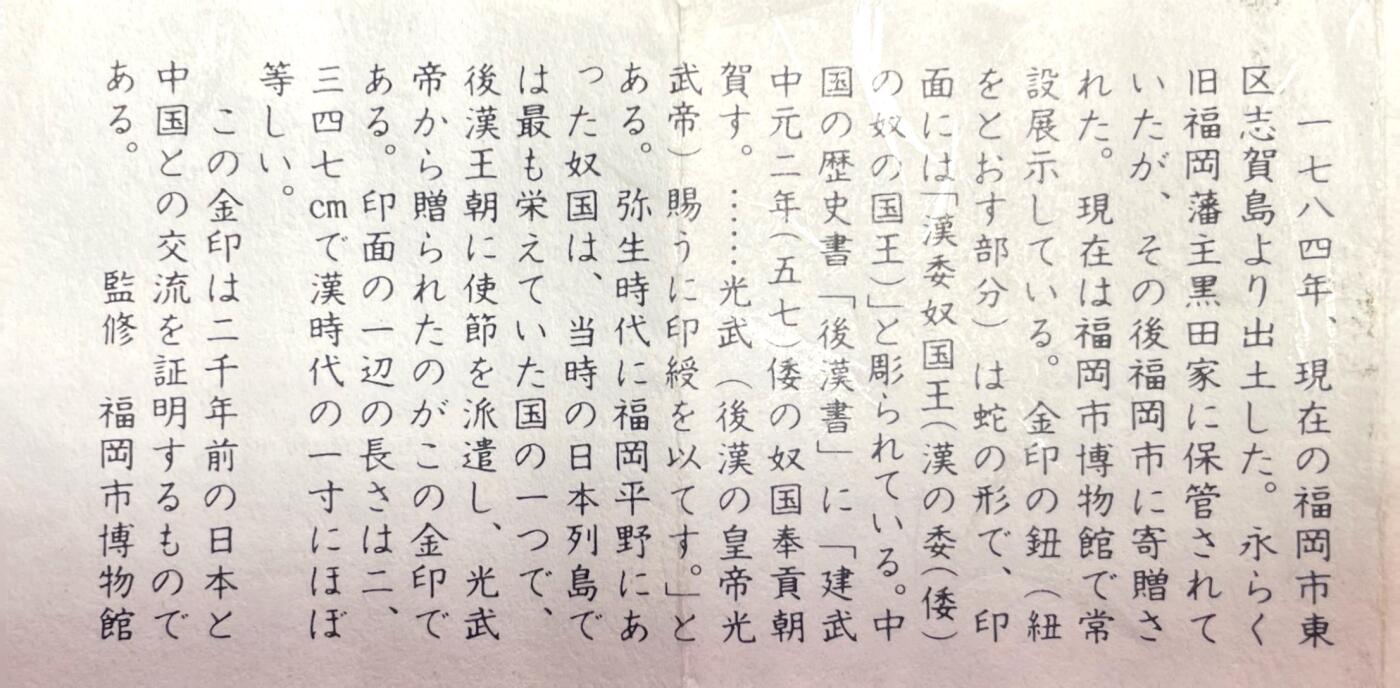 一七八四年、現在の福岡市東
区志賀島より出土した。永らく
旧福岡藩主黒田家に保管されて
いたが、その後福岡市に寄贈さ
れた。現在は福岡市博物館で常
設展示している。金印の鈕（紐
をとおす部分）は蛇の形で、印
面には「漢委奴国王（漢の委（倭）
の奴の国王）」と彫られている。中
国の歴史書「後漢書」に「建武
中元二年（五七）倭の奴国奉貢朝
賀す。……光武（後漢の皇帝光
武帝）賜うに印綬を以てす。」と
ある。弥生時代に福岡平野にあ
った奴国は、当時の日本列島で
は最も栄えていた国の一つで、
後漢王朝に使節を派遣し、光武
帝から贈られたのがこの金印で
ある。印面の一辺の長さは二、
三四七cmで漢時代の一寸にほぼ
等しい。
この金印は二千年前の日本と
中国との交流を証明するもので
ある。　　監修　福岡市博物館